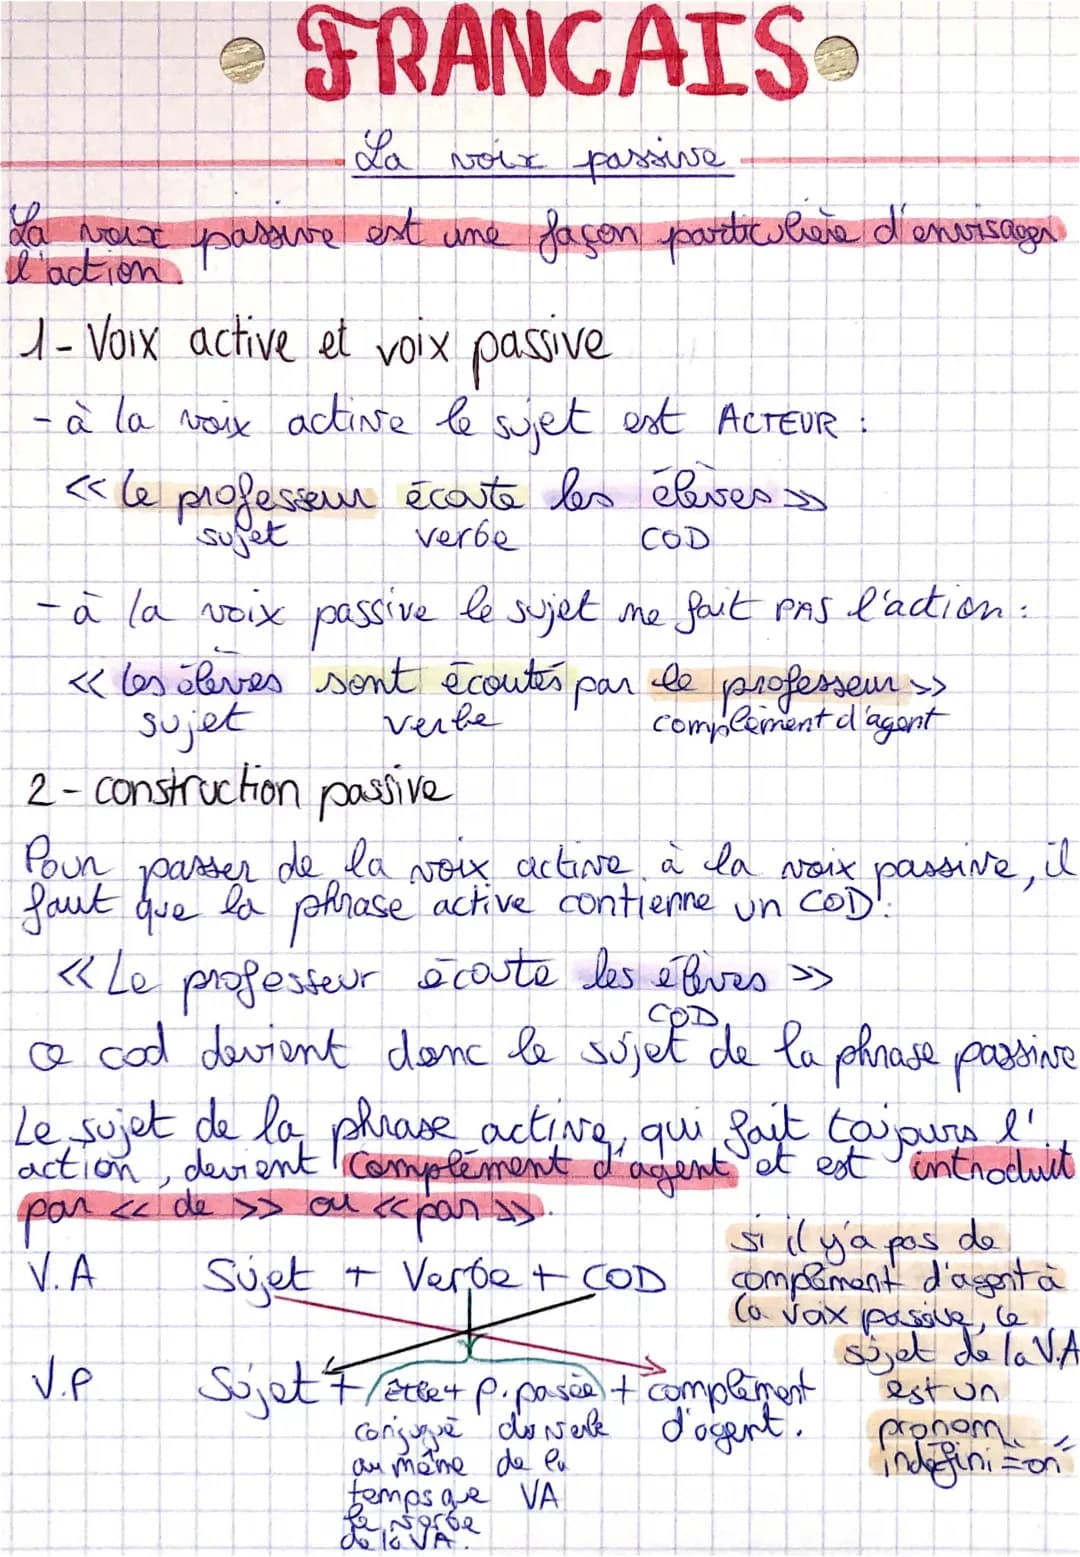 FRANCAIS
La voix passive
La voix passive est une façon particulière d'envisager
l'action.
1- Voix active et voix passive
- à la voix active le sujet est ACTEUR :
<< le professeur écoute les élèves >>
sujet verbe COD
- à la voix passive le sujet ne fait PAS l'action :
<< les élèves sont écoutés par le professeur >>
sujet verbe complément d'agent
2 - construction passive
Pour passer de la voix active à la voix passive, il
faut que la phrase active contienne un COD.
<< Le professeur écoute les élèves >>
COD
ce cod devient donc le sujet de la phrase passive
Le sujet de la phrase active, qui fait toujours l'
action, devient complément d'agent et est introduit
par << de >> ou << par >>.
V.A Sujet + Verbe + COD
V.P Sujet + être + p. passé + complément
d'agent.
conjugué
au même
temps que
le verbe
de la VA.
du verbe
de la
VA
si il y'a pas de
complément d'agent à
la voix passive, le
sujet de la V.A
est un
pronom
indéfini = on